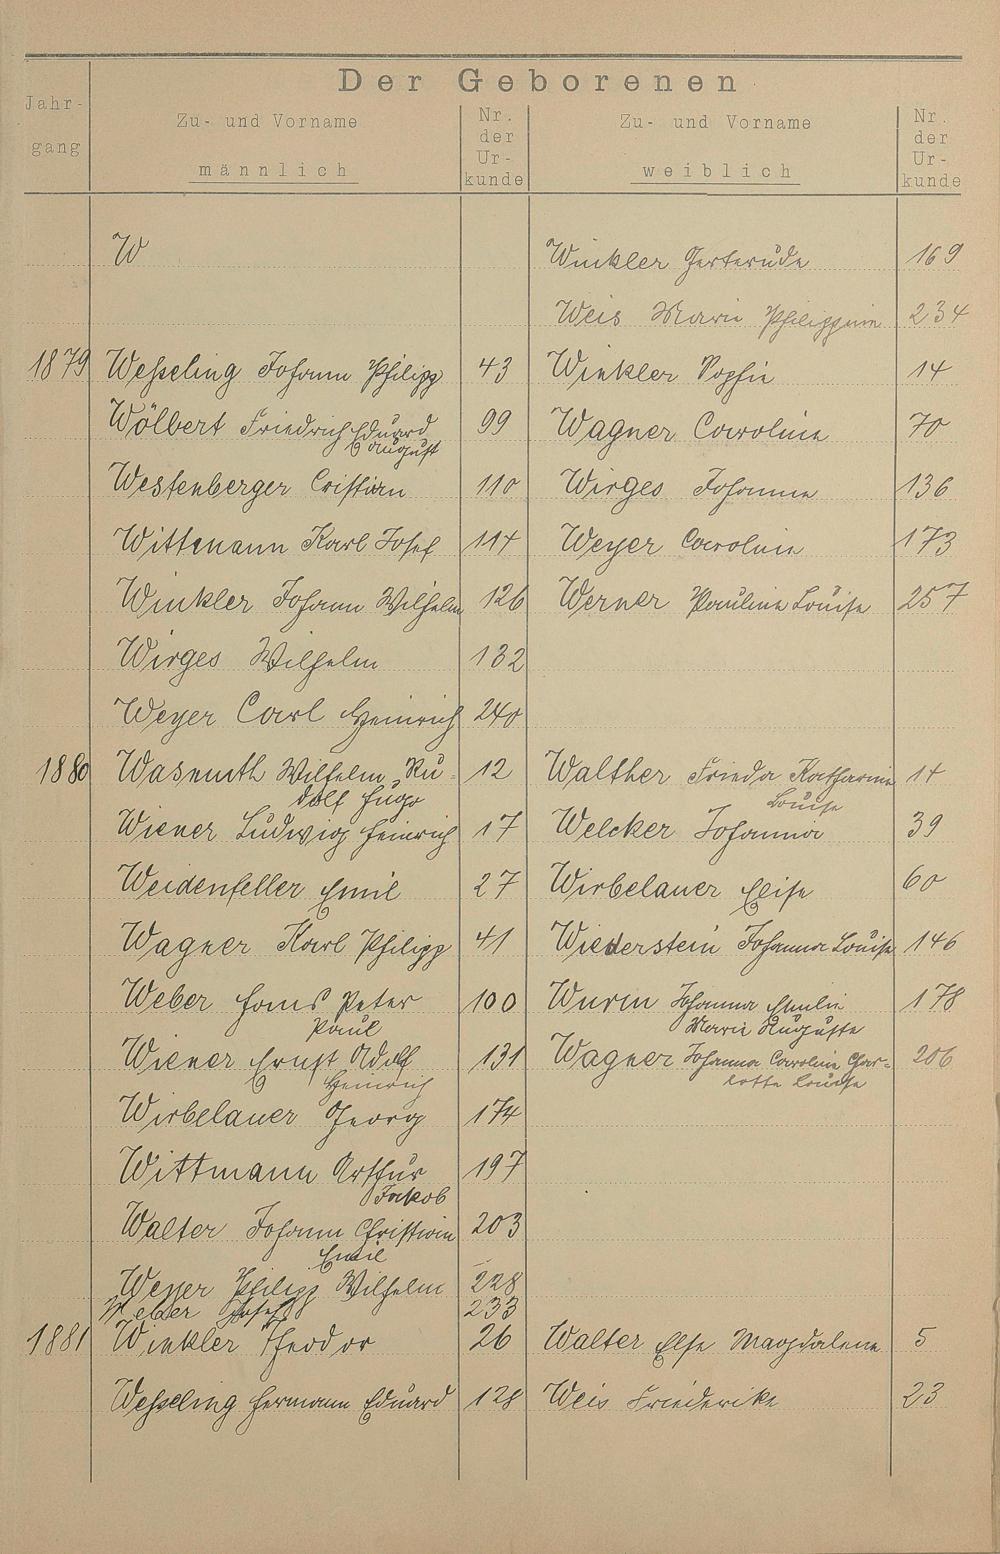 Der Geborenen
Jahr-
gang
Zu- und Vorname
männlich
Nr.
der
Ur-
kunde
Zu- und Vorname
weiblich
Nr.
der
Ur-
kunde
W Winkler Gerterude 169
Weis Marie Philippine 234
1879 Weßeling Johann Philipp 43 Winkler Sophie 14
Wölbert Friedrich Eduard 99 Wagner Caroline 70
August
Westenberger Cristian 110 Wirges Johanna 136
Wittmann Karl Josef 114 Weyer Caroline 173
Winkler Johann Wilhelm 126 Werner Pauline Louise 257
Wirges Wilhelm 132
Weyer Carl Heinrich 240
1880 Wasmuth Wilhelm Ru- 12 Walther Frieda Katharine 14
dolf Hugo Louise
Wiener Ludwig Heinrich 17 Welcker Johanna 39
Weidenfeller Emil 27 Wirbelauer Elise 60
Wagner Karl Philipp 41 Wiederstein Johanna Louise 146
Weber Hans Peter 100 Wurm Johanna Emilie 178
Paul Marie Auguste
Wiener Ernst Adolf 131 Wagner Johanna Caroline Char- 206
Heinrich lotte Louise
Wirbelauer Georg 174
Wittmann Arthur 197
Jakob
Walter Johann Christian 203
Emil
Weyer Philipp Wilhelm 228
Weber Josef 233
1881 Winkler Theodor 26 Walter Else Magdalene 5
Weßeling Hermann Eduard 128 Weis Friederike 23